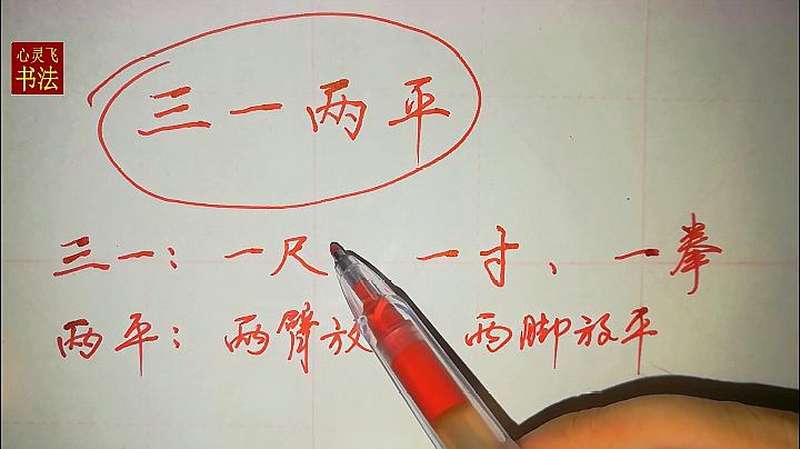 心灵飞
书法
三一两平
三一：一尺 一寸、一拳
两平：两臂放 两脚放平